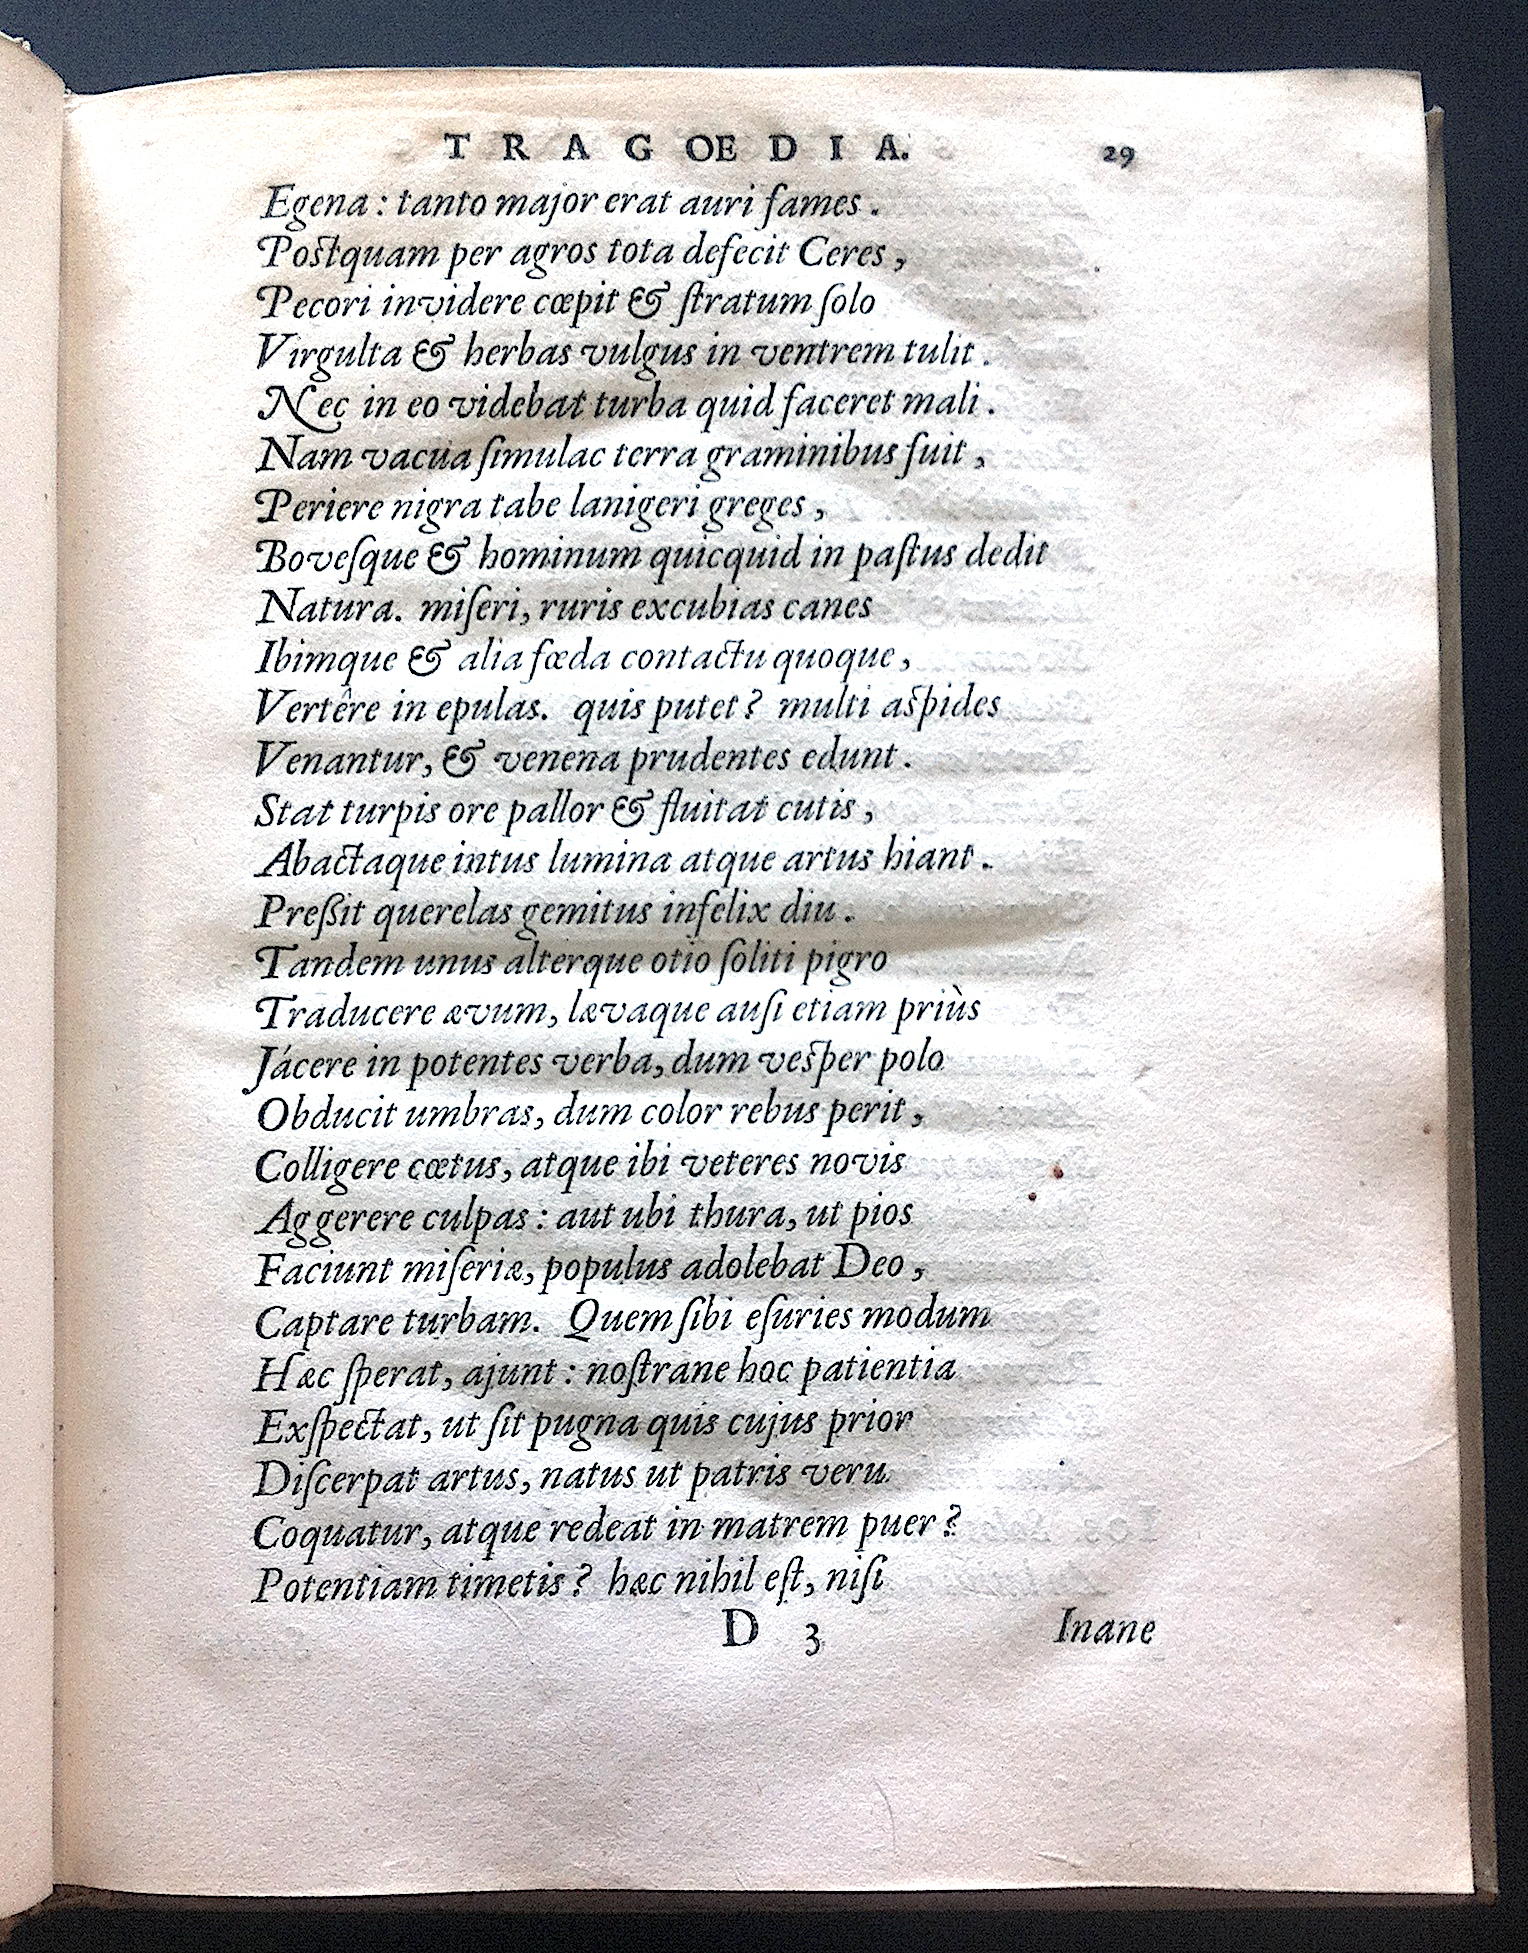 TRAGOEDIA. 29
Egena : tanto major erat auri fames .
Postquam per agros tota defecit Ceres ,
Pecori invidere cœpit & ſtratum ſolo
Virgulta & herbas vulgus in ventrem tulit .
Nec in eo videbat turba quid faceret mali .
Nam vacua ſimulac terra graminibus fuit ,
Periere nigra tabe lanigeri greges ,
Boveſque & hominum quicquid in paſtus dedit
Natura. miſeri, ruris excubias canes
Ibimque & alia fœda contactu quoque ,
Vertêre in epulas. quis putet ? multi aſpides
Venantur, & venena prudentes edunt .
Stat turpis ore pallor & fluitat cutis ,
Abactaque intus lumina atque artus hiant .
Preßit querelas gemitus infelix diu .
Tandem unus alterque otio ſoliti pigro
Traducere ævum, lævaque auſi etiam priùs
Jácere in potentes verba, dum veſper polo
Obducit umbras, dum color rebus perit ,
Colligere cœtus, atque ibi veteres novis
Aggerere culpas : aut ubi thura, ut pios
Faciunt miſeriæ, populus adolebat Deo ,
Captare turbam. Quem ſibi eſuries modum
Hæc ſperat, ajunt : noſtrane hoc patientia
Exſpectat, ut ſit pugna quis cujus prior
Diſcerpat artus, natus ut patris veru
Coquatur, atque redeat in matrem puer ?
Potentiam timetis ? hæc nihil eſt, niſi
D 3 Inane